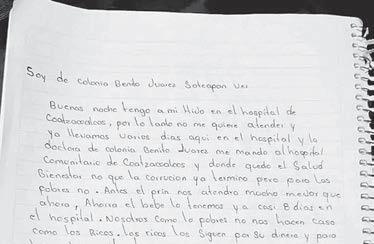 Soy de colonia Benito Juarez Soteapan Ver
Buenas noche tengo a mi Hijo en el hospital de
Coatzacoalcos, por lo tanto no me quiere atender y
ya llevamos varios dias aqui en el hospital y la
doctora de colonia Benito Juarez me mando al hospital
Comunitario de Coatzacoalcos y donde quedo el Salud
Bienestar no que la corrucion ya termino pero para los
pobres no. Antes el prin nos atendia mucho mejor que
ahora, Ahorra el bebe lo tenemos ya casi 8 dias en
el hospital. Nosotros como lo pobres no nos hacen caso
como los Ricos. los ricos los Siguen por su dinero y para